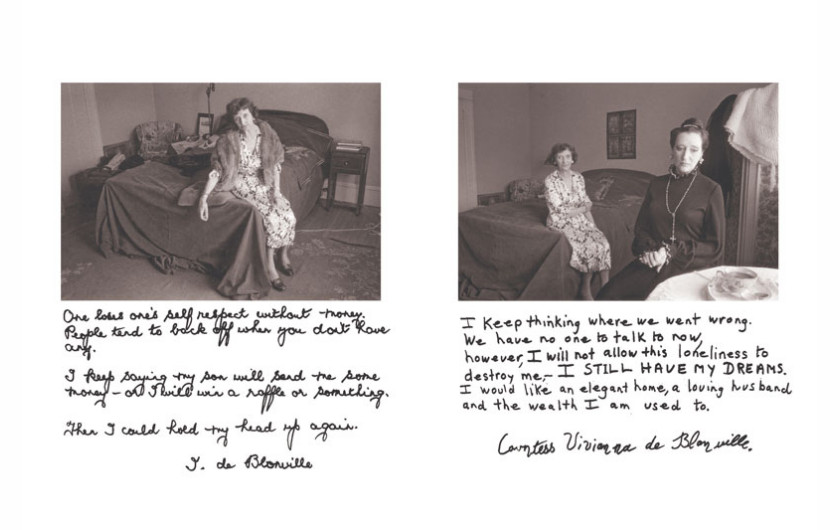 One loses one's self respect without money.
People tend to back off when you don't have
any.
I keep saying my son will send me some
money – or I will win a raffle or something.
Then I could hold my head up again.
I. de Blonville
I Keep thinking where we went wrong.
We have no one to talk to now,
however, I will not allow this loneliness to
destroy me,– I STILL HAVE MY DREAMS.
I would like an elegant home, a loving husband
and the wealth I am used to.
Countess Vivianna de Blonville.